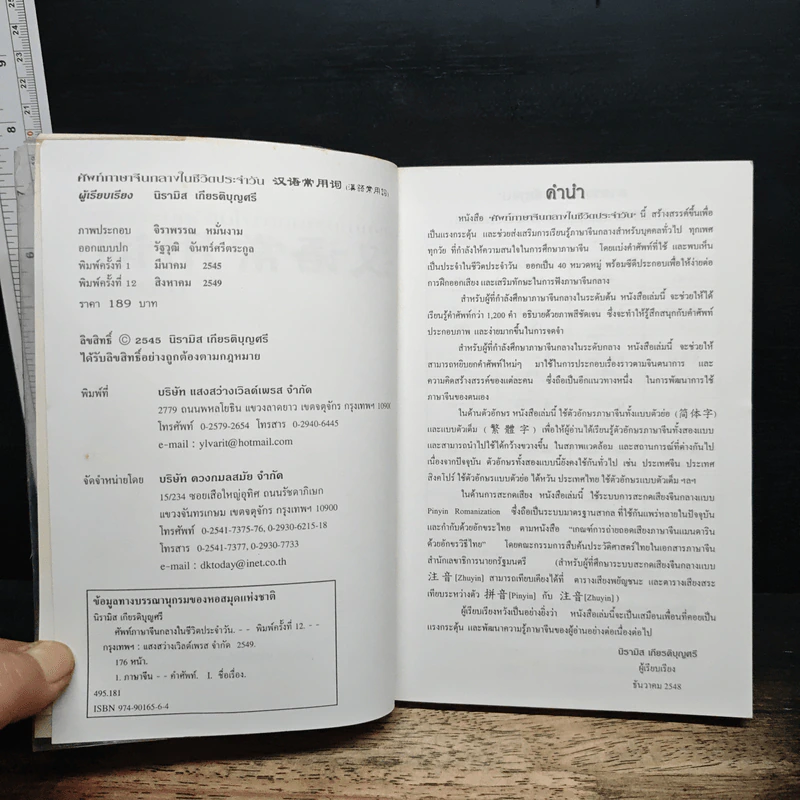 ศัพท์ภาษาจีนกลางในชีวิตประจำวัน 汉语常用词 (漢語常用詞)
ผู้เรียบเรียง นิรามิส เกียรติบุญศรี
ภาพประกอบ จิราพรรณ หมั่นงาม
ออกแบบปก รัฐวุฒิ จันทร์ศรีตระกูล
พิมพ์ครั้งที่ 1 มีนาคม 2545
พิมพ์ครั้งที่ 12 สิงหาคม 2549
ราคา 189 บาท
ลิขสิทธิ์ © 2545 นิรามิส เกียรติบุญศรี
ได้รับลิขสิทธิ์อย่างถูกต้องตามกฎหมาย
พิมพ์ที่ บริษัท แสงสว่างเวิลด์เพรส จำกัด
2779 ถนนพหลโยธิน แขวงลาดยาว เขตจตุจักร กรุงเทพฯ 10900
โทรศัพท์ 0-2579-2654 โทรสาร 0-2940-6445
e-mail : ylvarit@hotmail.com
จัดจำหน่ายโดย บริษัท ดวงกมลสมัย จำกัด
15/234 ซอยเสือใหญ่อุทิศ ถนนรัชดาภิเษก
แขวงจันทรเกษม เขตจตุจักร กรุงเทพฯ 10900
โทรศัพท์ 0-2541-7375-76, 0-2930-6215-18
โทรสาร 0-2541-7377, 0-2930-7733
e-mail : dktoday@inet.co.th
ข้อมูลทางบรรณานุกรมของหอสมุดแห่งชาติ
นิรามิส เกียรติบุญศรี
ศัพท์ภาษาจีนกลางในชีวิตประจำวัน. - - พิมพ์ครั้งที่ 12. - -
กรุงเทพฯ : แสงสว่างเวิลด์เพรส จำกัด 2549.
176 หน้า.
1. ภาษาจีน - - คำศัพท์. I. ชื่อเรื่อง.
495.181
ISBN 974-90165-6-4
คำนำ
หนังสือ "ศัพท์ภาษาจีนกลางในชีวิตประจำวัน" นี้ สร้างสรรค์ขึ้นเพื่อ
เป็นแรงกระตุ้น และช่วยส่งเสริมการเรียนรู้ภาษาจีนกลางสำหรับบุคคลทั่วไป ทุกเพศ
ทุกวัย ที่กำลังให้ความสนใจในการศึกษาภาษาจีน โดยแบ่งคำศัพท์ที่ใช้ และพบเห็น
เป็นประจำในชีวิตประจำวัน ออกเป็น 40 หมวดหมู่ พร้อมซีดีประกอบเพื่อให้ง่ายต่อ
การฝึกออกเสียง และเสริมทักษะในการฟังภาษาจีนกลาง
สำหรับผู้ที่กำลังศึกษาภาษาจีนกลางในระดับต้น หนังสือเล่มนี้ จะช่วยให้ได้
เรียนรู้คำศัพท์กว่า 1,200 คำ อธิบายด้วยภาพสีชัดเจน ซึ่งจะทำให้รู้สึกสนุกกับคำศัพท์
ประกอบภาพ และง่ายมากขึ้นในการจดจำ
สำหรับผู้ที่กำลังศึกษาภาษาจีนกลางในระดับกลาง หนังสือเล่มนี้ จะช่วยให้
สามารถหยิบยกคำศัพท์ใหม่ๆ มาใช้ในการประกอบเรื่องราวตามจินตนาการ และ
ความคิดสร้างสรรค์ของแต่ละคน ซึ่งถือเป็นอีกแนวทางหนึ่ง ในการพัฒนาการใช้
ภาษาจีนของตนเอง
ในด้านตัวอักษร หนังสือเล่มนี้ ใช้ตัวอักษรภาษาจีนทั้งแบบตัวย่อ (简体字)
และแบบตัวเต็ม (繁體字) เพื่อให้ผู้อ่านได้เรียนรู้ตัวอักษรภาษาจีนทั้งสองแบบ
และสามารถนำไปใช้ได้กว้างขวางขึ้น ในสภาพแวดล้อม และสถานการณ์ที่ต่างกันไป
เนื่องจากปัจจุบัน ตัวอักษรทั้งสองแบบนี้ยังคงใช้กันทั่วไป เช่น ประเทศจีน ประเทศ
สิงคโปร์ ใช้ตัวอักษรแบบตัวย่อ ไต้หวัน ประเทศไทย ใช้ตัวอักษรแบบตัวเต็ม ฯลฯ
ในด้านการสะกดเสียง หนังสือเล่มนี้ ใช้ระบบการสะกดเสียงจีนกลางแบบ
Pinyin Romanization ซึ่งถือเป็นระบบมาตรฐานสากล ที่ใช้กันแพร่หลายในปัจจุบัน
และกำกับด้วยอักษรไทย ตามหนังสือ "เกณฑ์การถ่ายถอดเสียงภาษาจีนแมนดาริน
ด้วยอักขรวิธีไทย" โดยคณะกรรมการสืบค้นประวัติศาสตร์ไทยในเอกสารภาษาจีน
สำนักเลขาธิการนายกรัฐมนตรี (สำหรับผู้ที่ศึกษาระบบสะกดเสียงจีนกลางแบบ
注音[Zhuyin] สามารถเทียบเคียงได้ที่ ตารางเสียงพยัญชนะ และตารางเสียงสระ
เทียบระหว่างตัว 拼音[Pinyin] กับ 注音[Zhuyin] )
ผู้เรียบเรียงหวังเป็นอย่างยิ่งว่า หนังสือเล่มนี้จะเป็นเสมือนเพื่อนที่คอยเป็น
แรงกระตุ้น และพัฒนาความรู้ภาษาจีนของผู้อ่านอย่างต่อเนื่องต่อไป
นิรามิส เกียรติบุญศรี
ผู้เรียบเรียง
ธันวาคม 2548